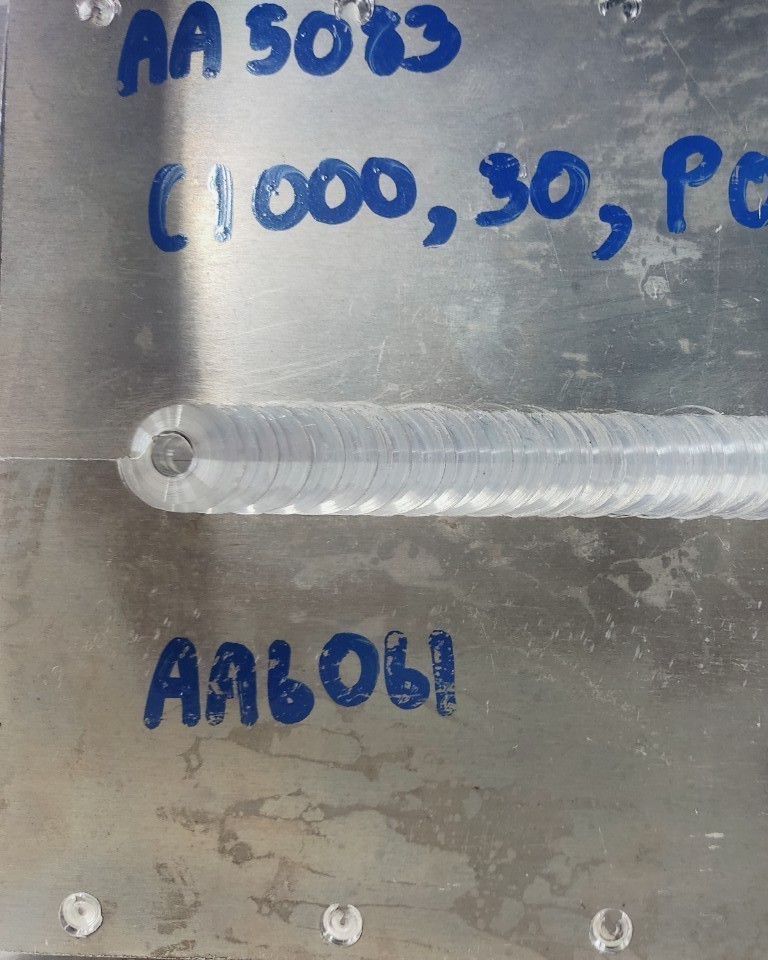 AA 5083
(1000, 30, PC
AA6061